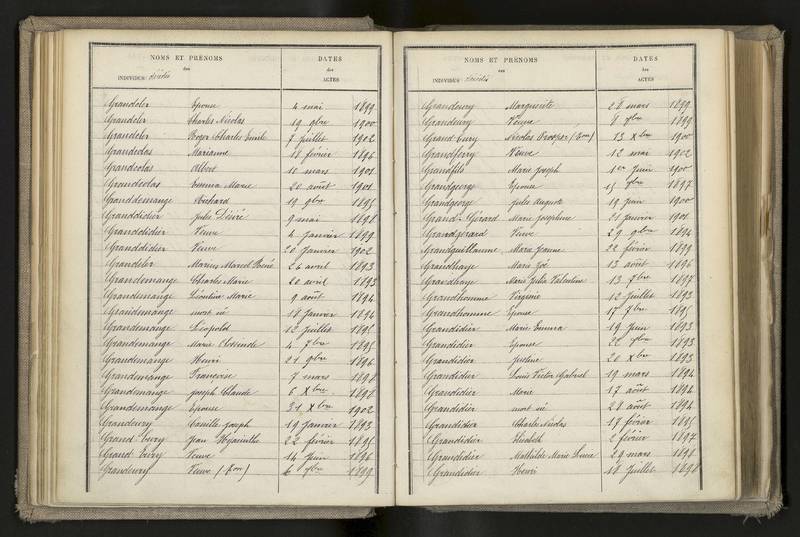 NOMS ET PRÉNOMS DATES
des des
INDIVIDUS décédés ACTES
Grandcler Epouse 4 mai 1899
Grandcler Charles Nicolas 19 9bre 1900
Grandcler Roger Charles Emile 7 Juillet 1902
Grandcolas Marianne 18 février 1896
Grandcolas Albert 11 mars 1901
Grandcolas Emma Marie 20 août 1901
Granddemange Richard 19 9bre 1895
Granddidier Jules Désiré 9 mai 1898
Granddidier Veuve 4 Janvier 1899
Granddidier Veuve 20 Janvier 1902
Grandeler Marius Marcel René 26 avril 1893
Grandemange Charles Marie 20 avril 1893
Grandemange Léontine Marie 9 août 1894
Grandemange mort né 18 Janvier 1894
Grandemange Léopold 12 Juillet 1895
Grandemange Marie 4 7bre 1895
Grandemange Henri 21 9bre 1896
Grandemange Françoise 7 mars 1898
Grandemange Joseph Claude 6 Xbre 1898
Grandemange Epouse 31 Xbre 1902
Grandeury Camille Joseph 19 Janvier 1893
Grand'Eury Jean Hyacinthe 22 février 1895
Grand'Eury Veuve 14 Juin 1896
Grandeury Veuve 6 9bre 1899
NOMS ET PRÉNOMS DATES
des des
INDIVIDUS décédés ACTES
Grandeury Marguerite 28 mars 1899
Grandeury Veuve 8 9bre 1899
Grand'Eury Nicolas Prosper 13 Xbre 1900
Grandferry Veuve 12 mai 1902
Grandfils Marie Joseph 1er Juin 1900
Grandgeorge Epouse 15 9bre 1897
Grandgeorge Jules Auguste 19 Juin 1900
Grand-Gérard Marie Joséphine 21 Janvier 1901
Grandgérard Veuve 29 9bre 1894
Grandguillaume Marie Jeanne 22 février 1899
Grandhaye Marie 13 août 1896
Grandhaye Marie Julie Valentine 13 7bre 1897
Grandhomme Virginie 12 Juillet 1893
Grandhomme Epouse 17 7bre 1895
Grandidier Marie Emma 19 Juin 1893
Grandidier Epouse 20 9bre 1893
Grandidier Justine 20 Xbre 1893
Grandidier Louis Victor Gabriel 19 mars 1894
Grandidier Marie 17 août 1894
Grandidier mort né 28 août 1894
Grandidier Charles Nicolas 17 février 1895
Grandidier Elisabeth 2 février 1897
Grandidier Mathilde Marie Lucie 29 mars 1898
Grandidier Henri 18 Juillet 1898